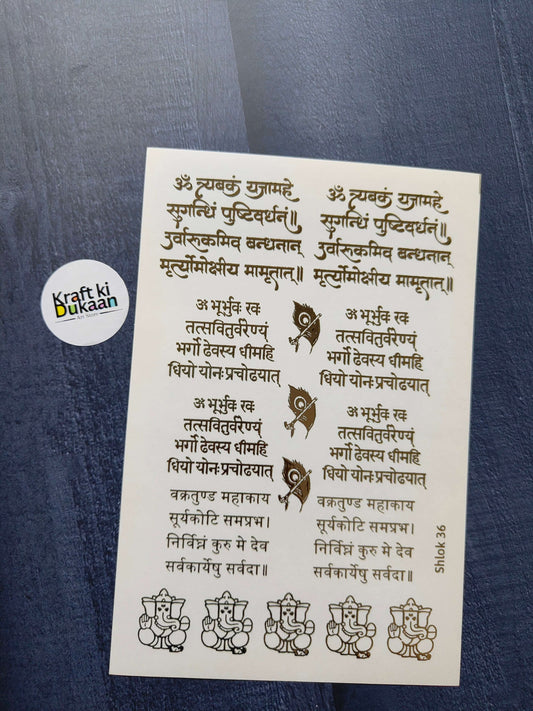 Kraft ki
Dukaan
Art Store
ॐ त्र्यबकं यजामहे
सुगन्धिं पुष्टिवर्धनं॥
उर्वारुकमिव बन्धनान्
मृर्त्योमोक्षीय मामृतात्॥
ॐ त्र्यबकं यजामहे
सुगन्धिं पुष्टिवर्धनं॥
उर्वारुकमिव बन्धनान्
मृर्त्योमोक्षीय मामृतात्॥
ॐ भूर्भुवः स्वः
तत्सवितुर्वरेण्यं
भर्गो देवस्य धीमहि
धियो योनः प्रचोदयात्
ॐ भूर्भुवः स्वः
तत्सवितुर्वरेण्यं
भर्गो देवस्य धीमहि
धियो योनः प्रचोदयात्
ॐ भूर्भुवः स्वः
तत्सवितुर्वरेण्यं
भर्गो देवस्य धीमहि
धियो योनः प्रचोदयात्
ॐ भूर्भुवः स्वः
तत्सवितुर्वरेण्यं
भर्गो देवस्य धीमहि
धियो योनः प्रचोदयात्
वक्रतुण्ड महाकाय
सूर्यकोटि समप्रभ।
निर्विघ्नं कुरु मे देव
सर्वकार्येषु सर्वदा॥
वक्रतुण्ड महाकाय
सूर्यकोटि समप्रभ।
निर्विघ्नं कुरु मे देव
सर्वकार्येषु सर्वदा॥
Shlok 36